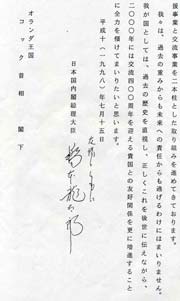 援事業と交流事業を二本柱とした取り組みを進めてきております。
我々は、過去の重みからも未来への責任からも逃げるわけにはまいりません。
我が国としては、過去の歴史を直視し、正しくこれを後世に伝えながら、
二〇〇〇年には交流四〇〇周年を迎える貴国との友好関係を更に増進すること
に全力を傾けてまいりたいと思います。
平成十（一九九八）年七月十五日
日本国内閣総理大臣
橋本龍太郎
オランダ王国
コック首相閣下